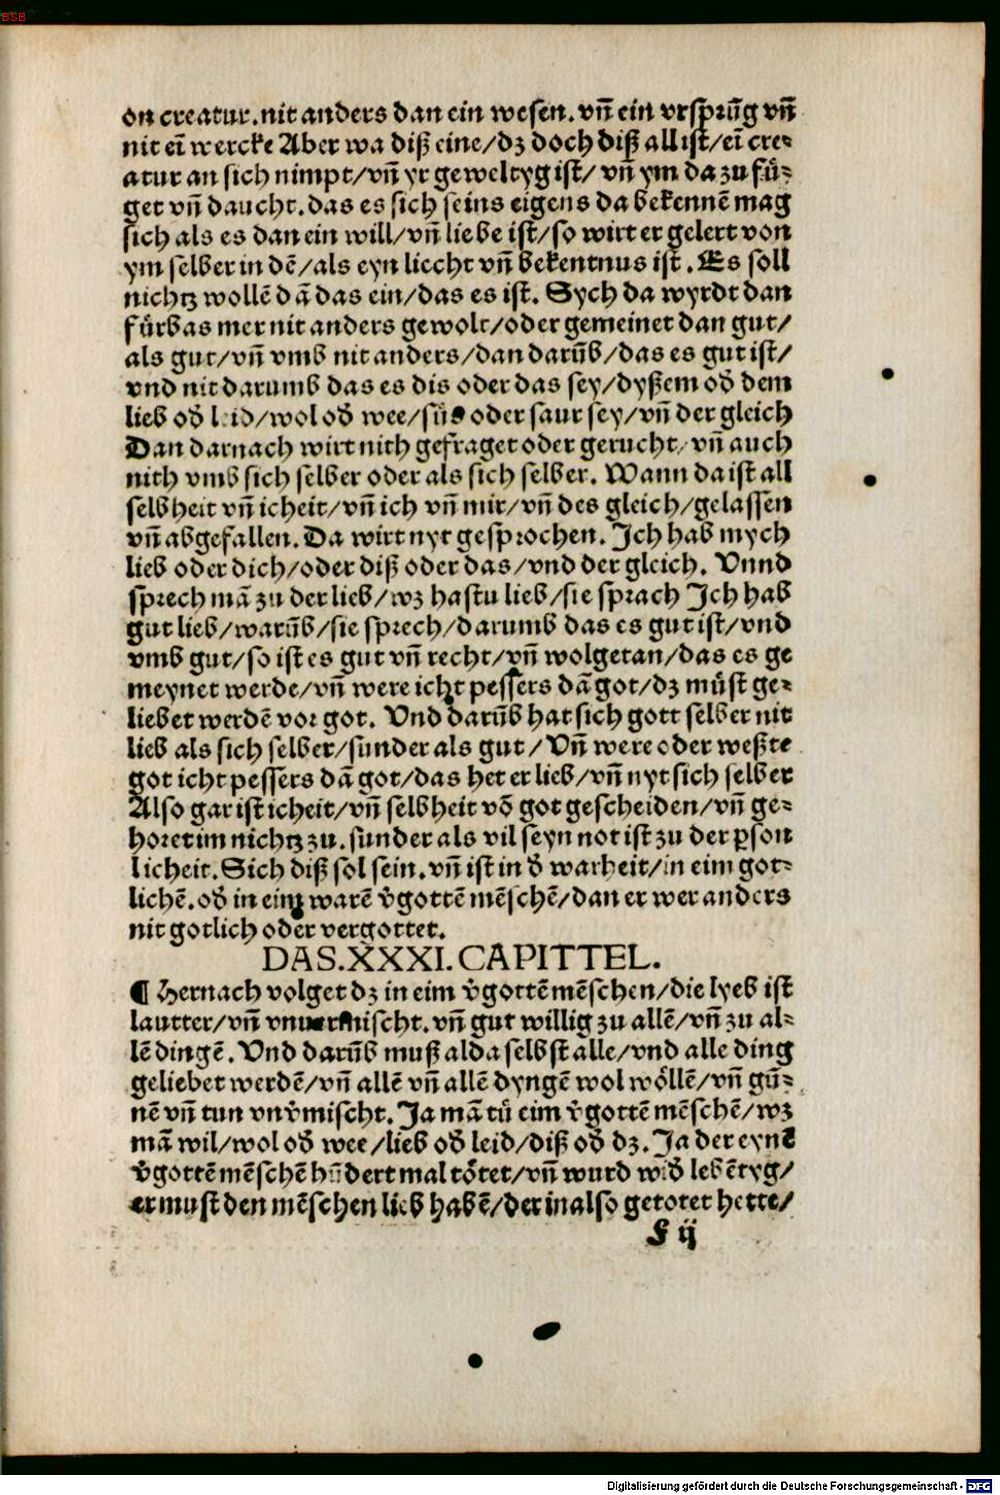 BSB
on creatur. nit anders dan ein wesen. vñ ein vrsprũg vñ
nit eĩ wercke Aber wa diß eine/dz doch diß all ist/eĩ cre⸗
atur an sich nimpt/vñ yr geweltyg ist/ vñ ym da zu fü⸗
get vñ daucht. das es sich seins eigens da bekennẽ mag
sich als es dan ein will/vñ liebe ist/so wirt er gelert von
ym selber in dẽ/als eyn liecht vñ bekentnus ist. Es soll
nichtz wollẽ dã das ein/das es ist. Sych da wyrdt dan
fürbas mer nit anders gewolt/oder gemeinet dan gut/
als gut/vñ vmb nit anders/dan darũb/das es gut ist/
vnd nit darumb das es dis oder das sey/dyßem od̕ dem
lieb od̕ leid/wol od̕ wee/süs oder saur sey/vñ der gleich
Dan darnach wirt nith gefraget oder gerucht/vñ auch
nith vmb sich selber oder als sich selber. Wann da ist all
selbheit vñ icheit/vñ ich vñ mir/vñ des gleich/gelassen
vñ abgefallen. Da wirt nyt gesprochen. Ich hab mych
lieb oder dich/oder diß oder das/vnd der gleich. Vnnd
sprech mã zu der lieb/wz hastu lieb/sie sprach Ich hab
gut lieb/warũb/sie sprech/darumb das es gut ist/vnd
vmb gut/so ist es gut vñ recht/vñ wolgetan/das es ge
meynet werde/vñ were icht pessers dã got/dz müst ge⸗
liebet werdẽ vor got. Vnd darũb hat sich gott selber nit
lieb als sich selber/sunder als gut/Vñ were oder weßte
got icht pessers dã got/das het er lieb/vñ nyt sich selber
Also gar ist icheit/vñ selbheit võ got gescheiden/vñ ge⸗
horet im nichtz zu. sunder als vil seyn not ist zu der ꝑson
licheit. Sich diß sol sein. vñ ist in d̕ warheit/in eim got⸗
lichẽ. od̕ in eim warẽ v̕gottẽ mẽschẽ/dan er wer anders
nit gotlich oder vergottet.
DAS.XXXI.CAPITTEL.
¶ Hernach volget dz in eim v̕gottẽ mẽschen/die lyeb ist
lautter/vñ vnuermischt. vñ gut willig zu allẽ/vñ zu al⸗
lẽ dingẽ. Vnd darũb muß alda selbst alle/vnd alle ding
geliebet werdẽ/vñ allẽ vñ allẽ dyngẽ wol wöllẽ/vñ gũ⸗
nẽ vñ tun vnv̕mischt. Ja mã tü eim v̕gottẽ mẽschẽ/wz
mã wil/wol od̕ wee/lieb od̕ leid/diß od̕ dz. Ja der eynẽ
v̕gottẽ mẽschẽ hũdert mal tötet/vñ wurd wid̕ lebẽtyg/
er must den mẽschen lieb habẽ/der in also getotet hette/
F ij
Digitalisierung gefördert durch die Deutsche Forschungsgemeinschaft - DFG